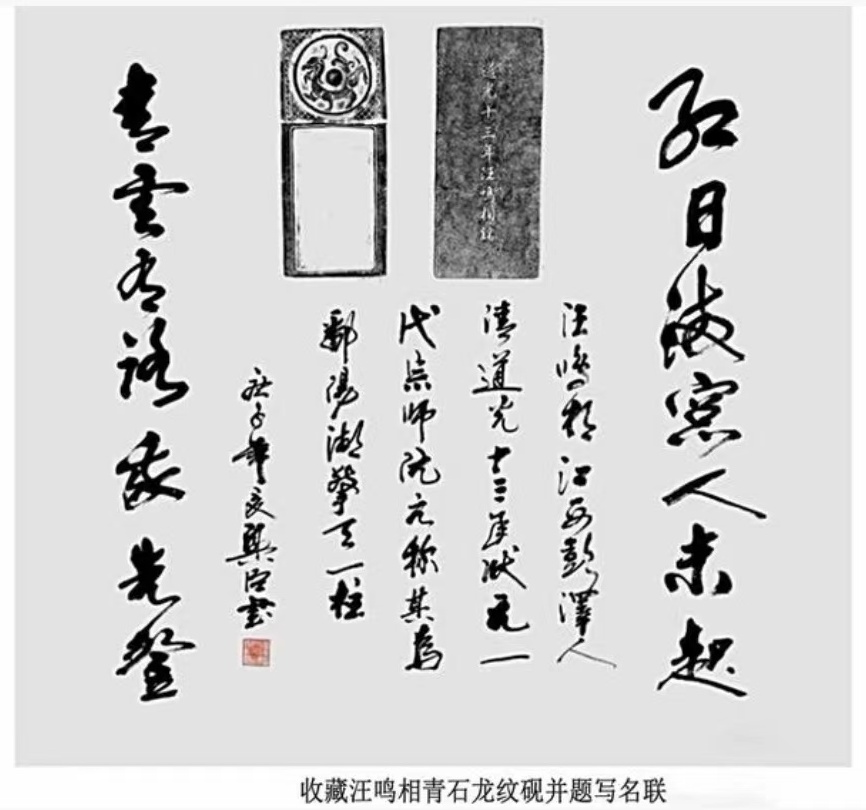 红日满窗人未起
道光十三年汪鸣相
汪鸣相江西彭澤人
清道光十三年状元一
代宗师阮元称其为
鄱陽湖擎天一柱
庚子
书
青雲有路我先登
收藏汪鸣相青石龙纹砚并题写名联